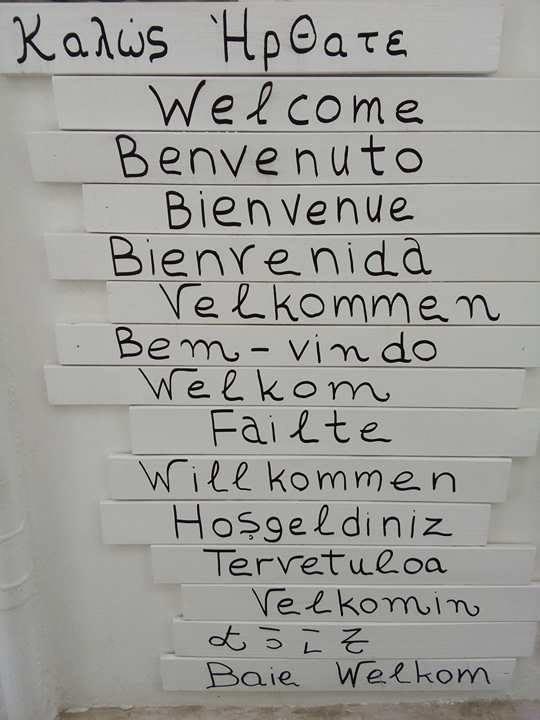 Καλώς Ἠρθατε
Welcome
Benvenuto
Bienvenue
Bienvenida
Velkommen
Bem-vindo
Welkom
Failte
Willkommen
Hoşgeldiniz
Tervetuloa
Velkomin
ようこそ
Baie Welkom